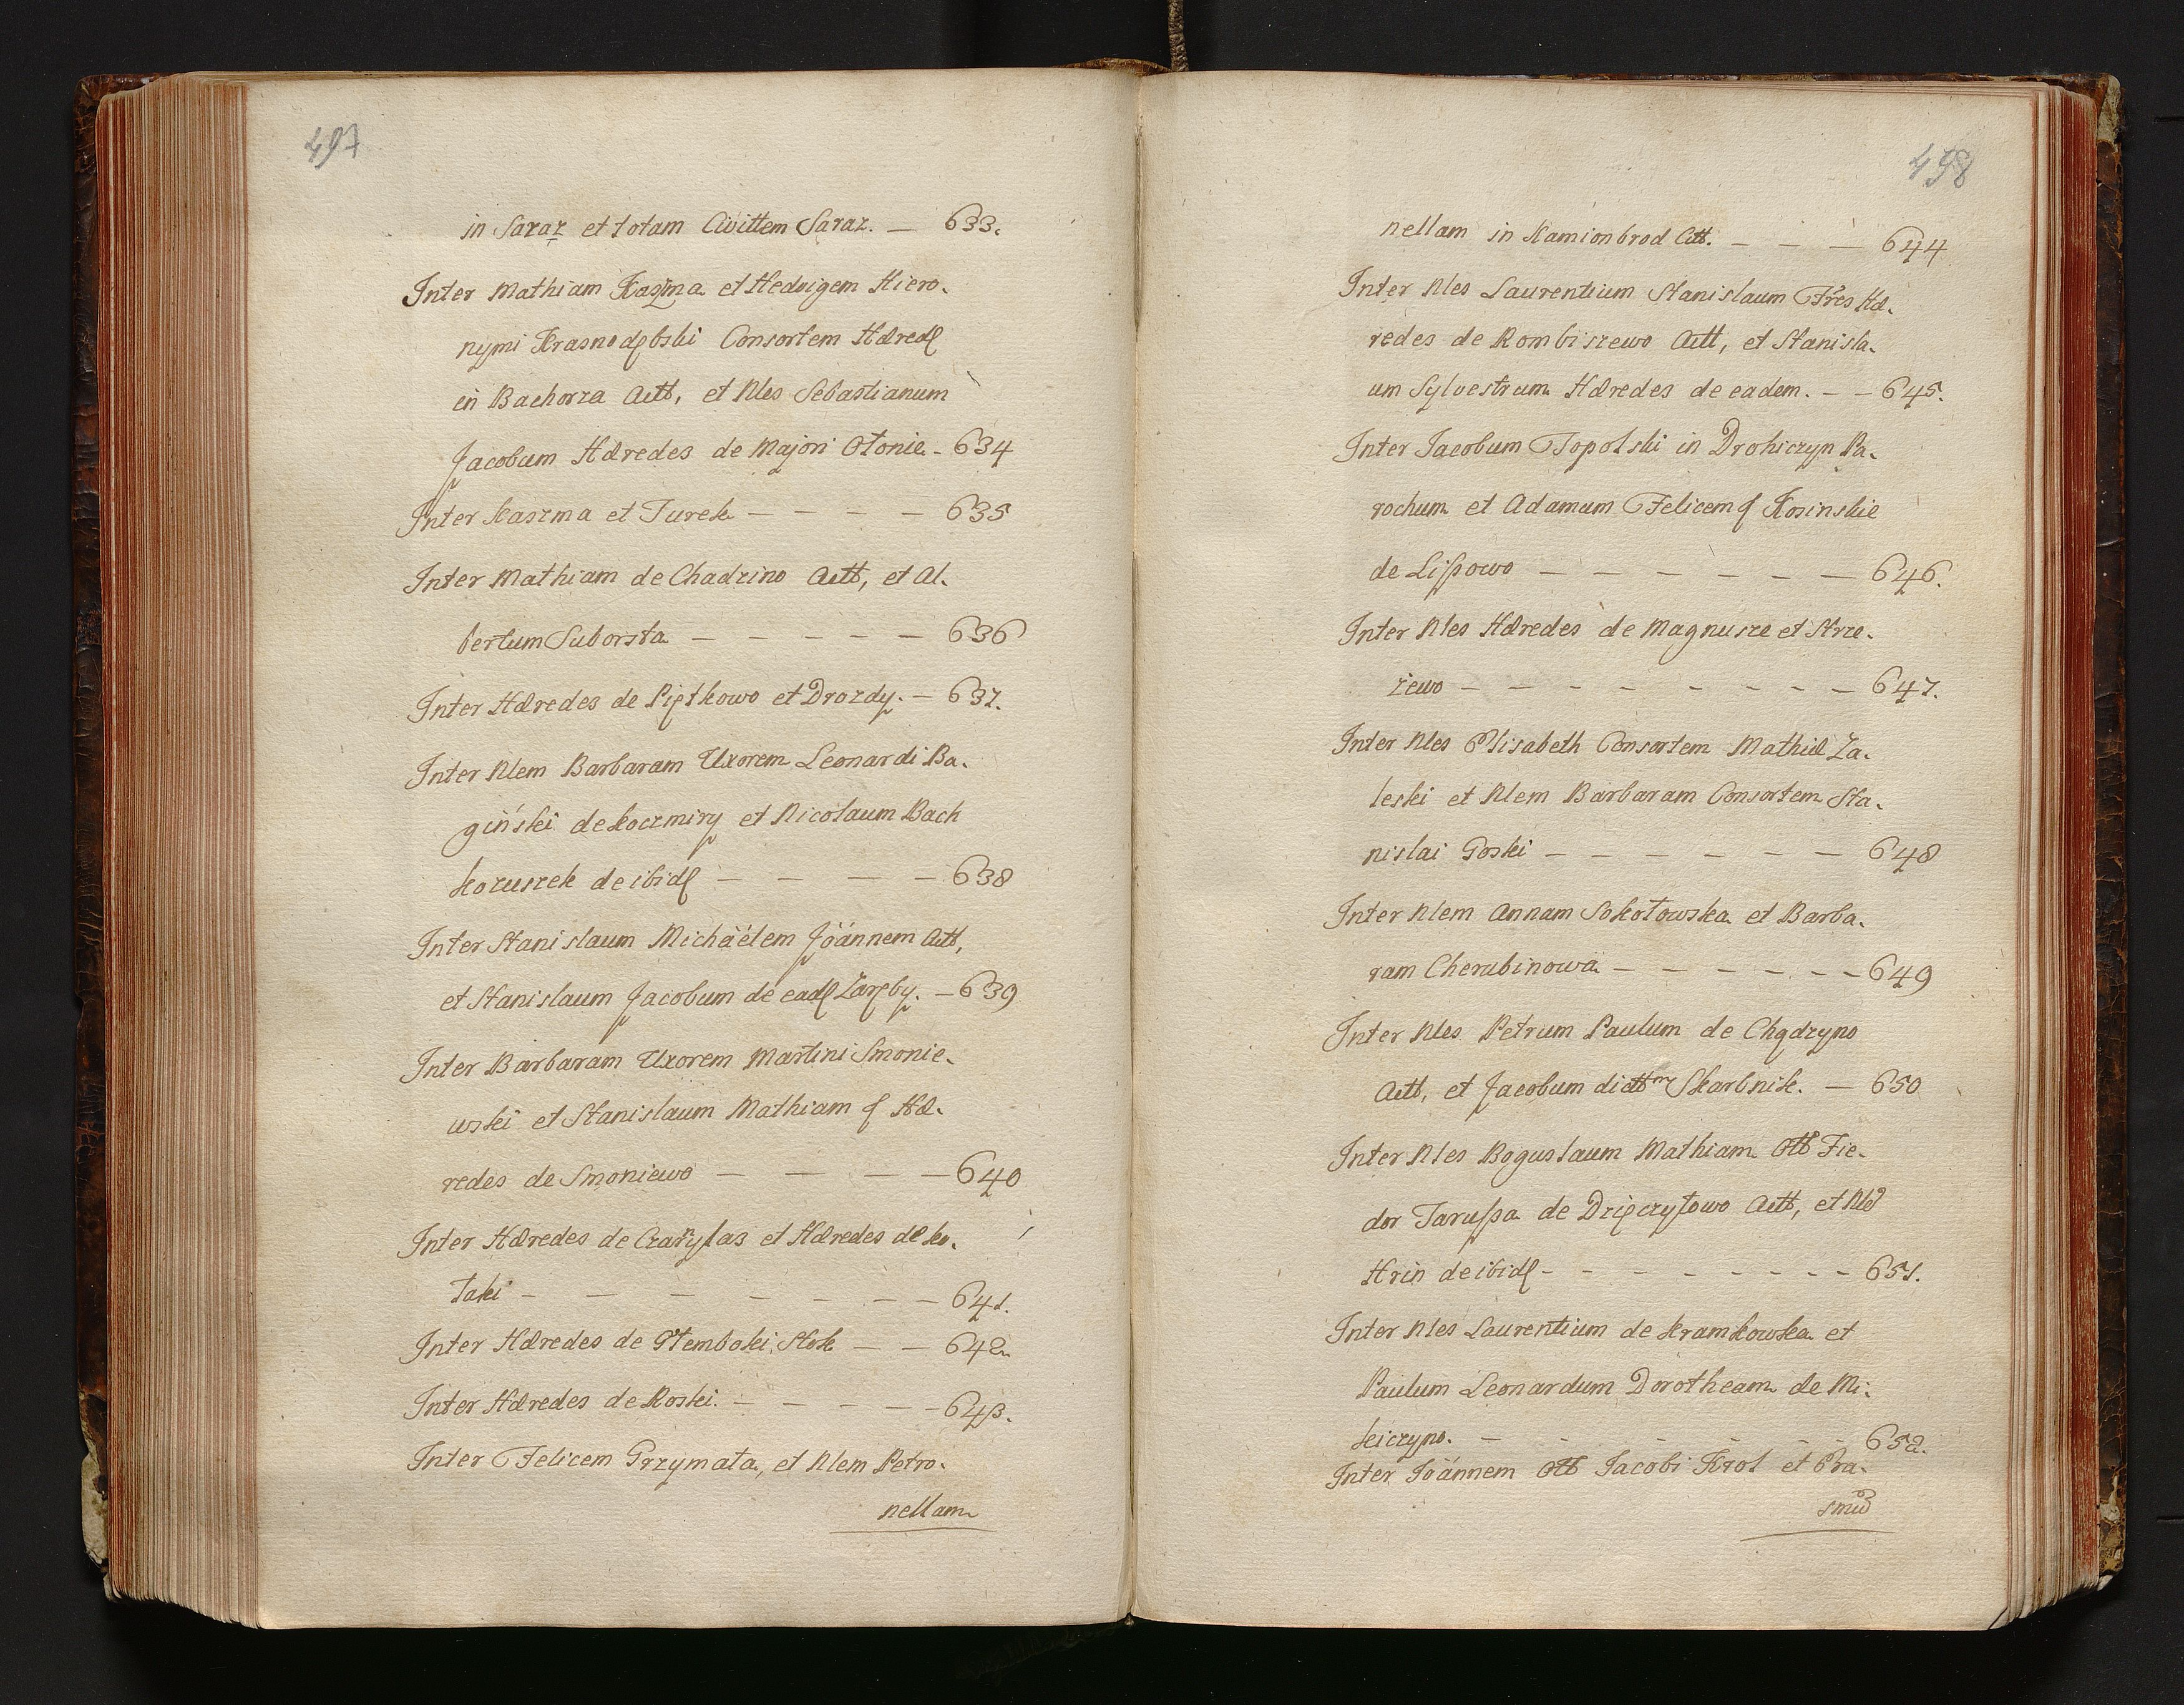 497
in Saraz et totam Civittem Saraz. — 633.
Inter Mathiam Kaszma et Hedvigem Hiero-
nymi Krasnodębski Consortem Hæred
in Bachorza Actt, et Nles Sebastianum
Jacobum Hæredes de Majori Otonie - 634
Inter Kaszma et Turek — — — — 635
Inter Mathiam de Chadzino Actt, et Al-
bertum Suborsta — — — — — 636
Inter Hæredes de Piętkowo et Drozdy. — 637.
Inter Nlem Barbaram Uxorem Leonardi Ba-
giński de Koczmiry et Nicolaum Bach
Kozuszek de ibid — — — — 638
Inter Stanislaum Michäélem Jöännem Actt,
et Stanislaum Jacobum de ead Zaręby. — 639
Inter Barbaram Uxorem Martini Smonie-
wski et Stanislaum Mathiam Hæ-
redes de Smoniewo — — — — 640
Inter Hæredes de et Hæredes de Ko-
łaki — — — — — — — 641.
Inter Hæredes de Głemboki Stok — — 642
Inter Hæredes de Roski. — — — — — 643.
Inter Felicem Grzymała, et Nlem Petro-
nellam
498
nellam in Kamionbrod Citt. — — — 644
Inter Nles Laurentium Stanislaum Frēs Hæ-
redes de Rombiszewo Actt, et Stanisla-
um Sylvestrum Hæredes de eadem. — — 645.
Inter Jacobum Topolski in Drohiczyn Pa-
rochum et Adamum Felicem Kosinskie
de Lissowo — — — — — — — 646.
Inter Nles Hæredes de Magnusze et Strze-
żewo — — — — — — — — — 647.
Inter Nles Elisabeth Consortem Mathiæ Za-
leski et Nlem Barbaram Consortem Sta-
nislai Goski — — — — — — 648
Inter Nlem Annam Sokołowska et Barba-
ram Cherubinowa — — — — — — 649
Inter Nles Petrum Paulum de Chądzyno
Actt, et Jacobum dictt Skarbnik. — 650
Inter Nles Boguslaum Mathiam Ott Fie-
dor Tarussa de Dzięczyłowo Actt, et Nl
Hrin de ibid — — — — — — — — 651.
Inter Nles Laurentium de Kramkowka et
Paulum Leonardum Dorotheam de Mi-
kiczyno. — — — — — 652.
Inter Jöánnem Ott Jacobi Krol et Era-
smu